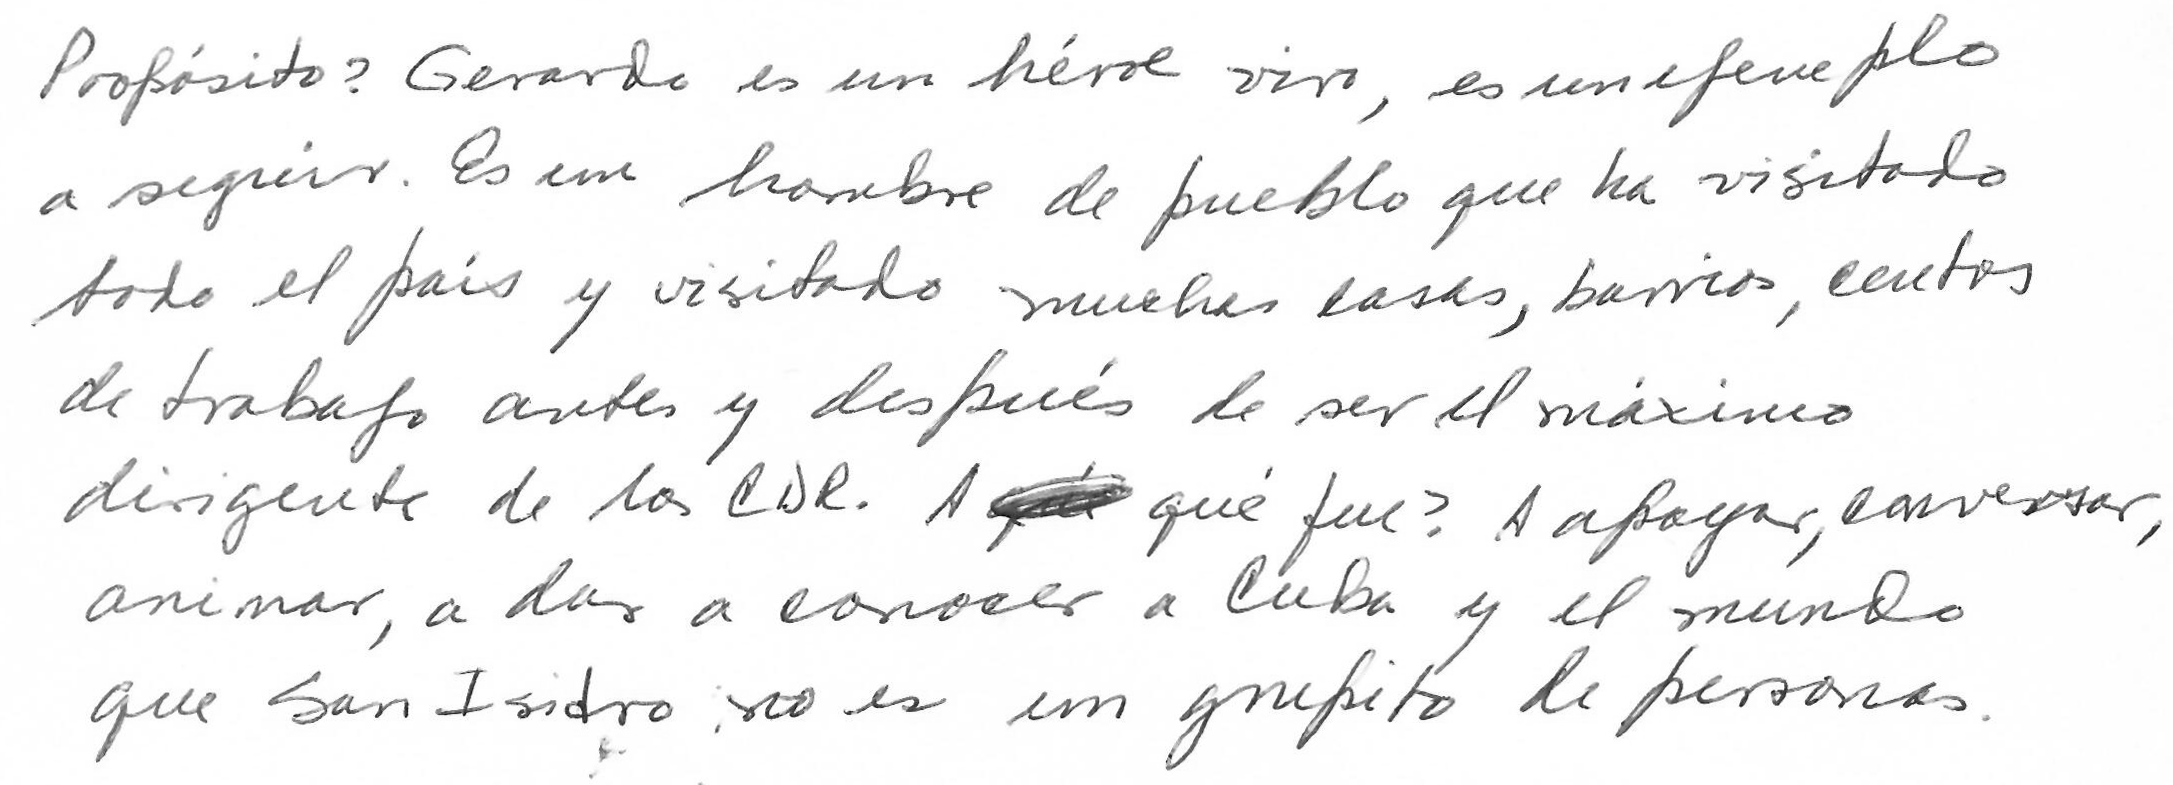 Propósito? Gerardo es un héroe vivo, es un ejemplo
a seguir. Es un hombre de pueblo que ha visitado
todo el país y visitado muchas casas, barrios, centros
de trabajo antes y después de ser el máximo
dirigente de los CDR. A qué fue? A apoyar, conversar,
animar, a dar a conocer a Cuba y el mundo
que San Isidro no es un grupito de personas.